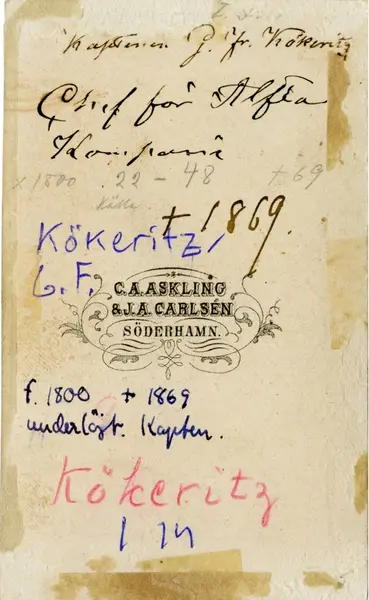 Kaptenen G. Fr. Kökeritz
Chef för Alfta
Kompani
x 1800 22 - 48 +69
+ 1869.
Kökeritz,
G. F.
C. A. ASKLING
& J. A. CARLSÉN
SÖDERHAMN.
f. 1800 + 1869
underlöjt. Kapten.
Kökeritz